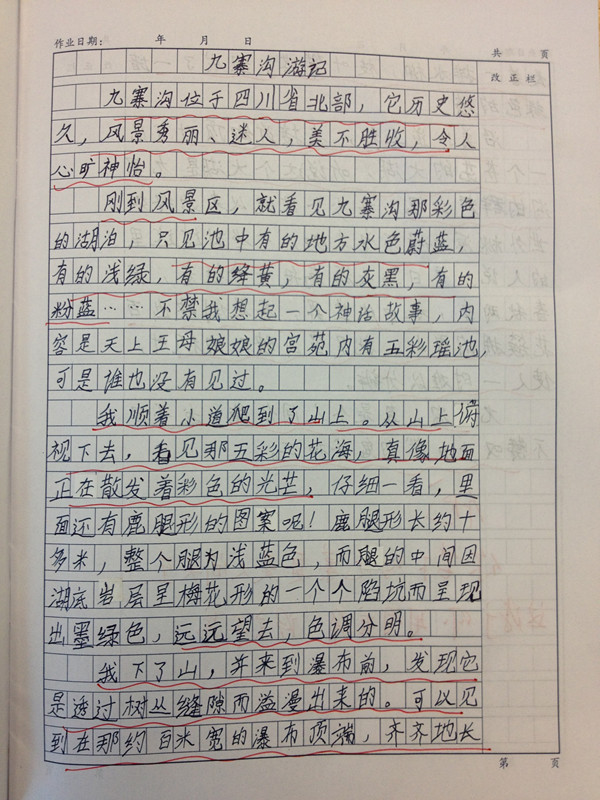 作业日期： 年 月 日 共 页
九寨沟游记
改正栏
九寨沟位于四川省北部，它历史悠
久，风景秀丽、迷人，美不胜收，令人
心旷神怡。
刚到风景区，就看见九寨沟那彩色
的湖泊，只见池中有的地方水色蔚蓝，
有的浅绿，有的绛黄，有的灰黑，有的
粉蓝……不禁我想起一个神话故事，内
容是天上王母娘娘的宫苑内有五彩瑶池，
可是谁也没有见过。
我顺着小道爬到了山上。从山上俯
视下去，看见那五彩的花海，真像地面
正在散发着彩色的光芒，仔细一看，里
面还有鹿腿形的图案呢！鹿腿形长约十
多米，整个腿为浅蓝色，而腿的中间因
湖底岩层呈梅花形的一个个陷坑而呈现
出墨绿色，远远望去，色调分明。
我下了山，并来到瀑布前，发现它
是透过树从缝隙而溢漫出来的。可以见
到在那约百米宽的瀑布顶端，齐齐地长
第 页